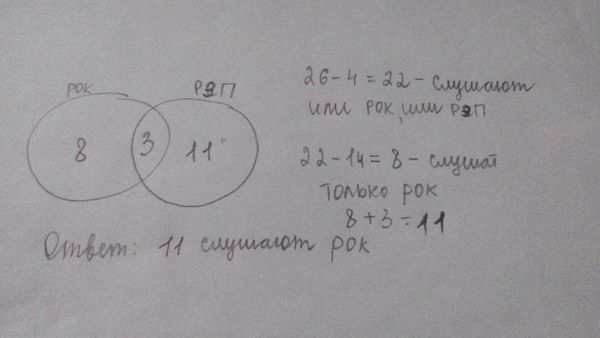 РОК
РЭП
8
3
11
26-4=22- слушают
или рок, или рэп
22-14=8- слушат
только рок
8+3=11
Ответ: 11 слушают рок